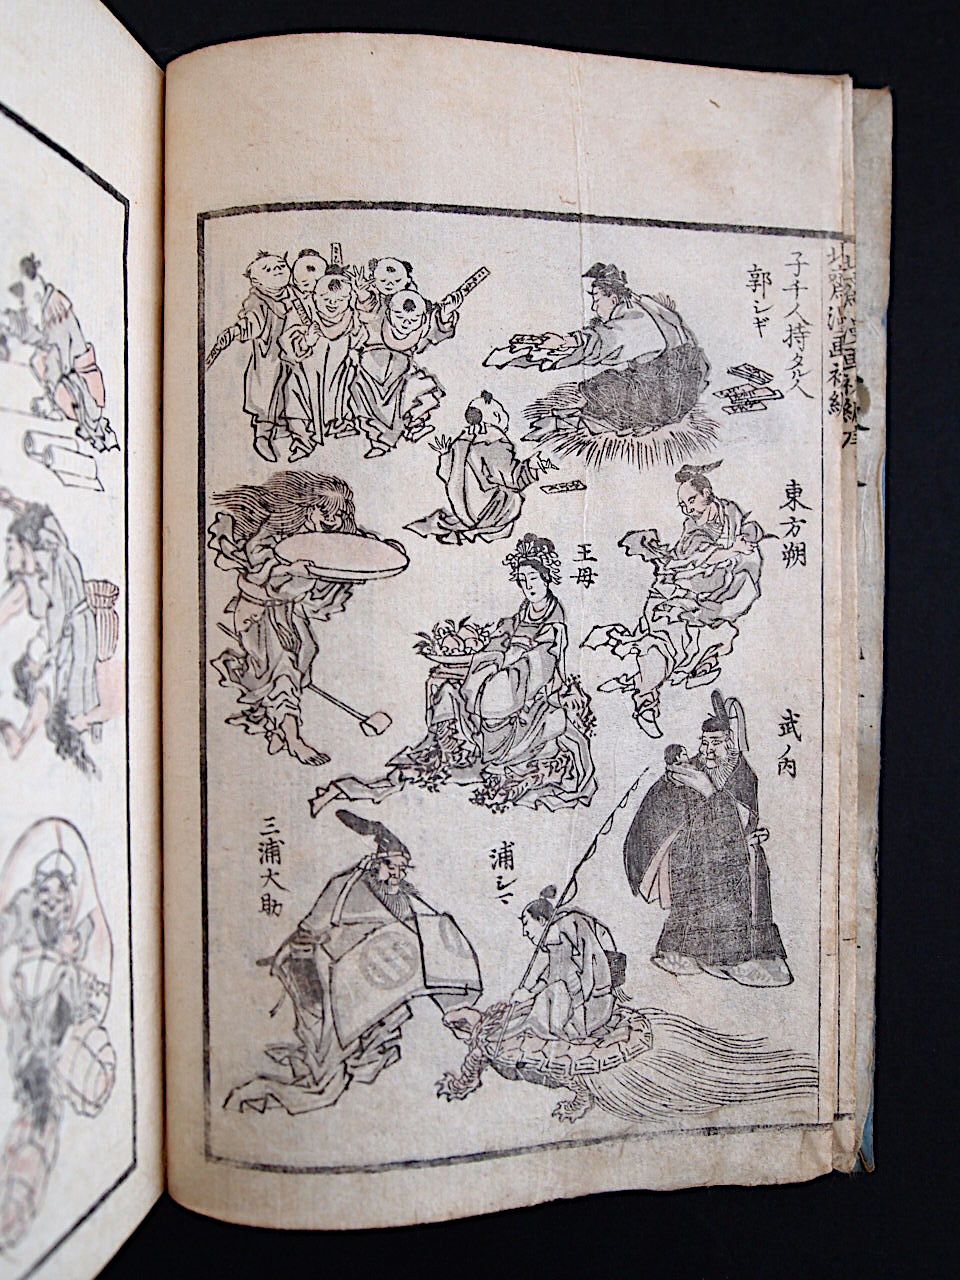 子千人持タル人
郭シギ
東方朔
王母
武ノ内
浦シマ
三浦大助